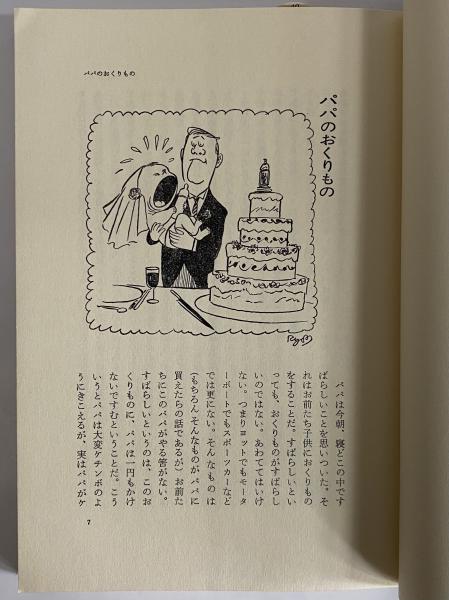 パパのおくりもの
パパのおくりもの
パパは今朝、寝どこの中です
ばらしいことを思いついた。そ
れはお前たち子供におくりもの
をすることだ。すばらしいとい
っても、おくりものがすばらし
いのではない。あわててはいけ
ない。つまりヨットでもモータ
ーボートでもスポーツカーなど
では更にない。そんなものは
(もちろんそんなものが、パパに
買えたらの話であるが)お前た
ちにこのパパがやる筈がない。
すばらしいというのは、このお
くりものに、パパは一円もかけ
ないですむということだ。こう
いうとパパは大変ケチンボのよ
うにきこえるが、実はパパがケ
7